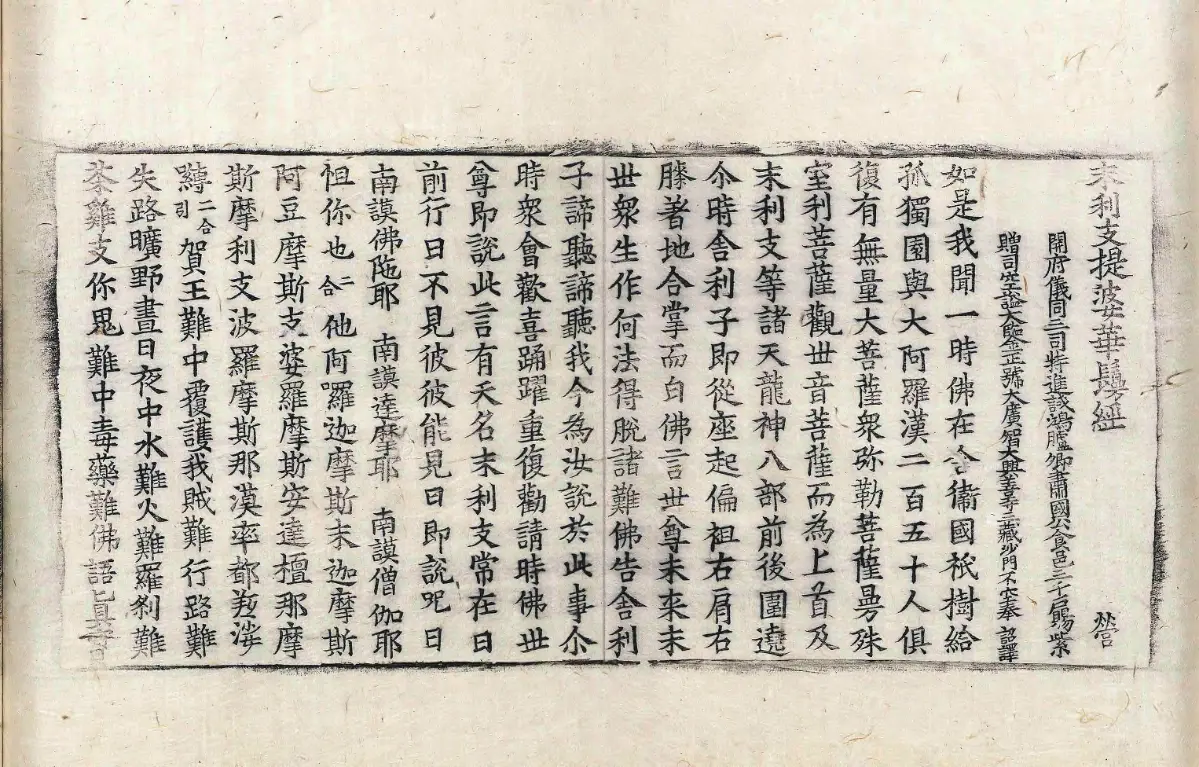 末利支提婆華鬘經 營
開府儀同三司特進試鴻臚卿肅國公食邑三千戶賜紫
贈司空謚大鑒正號大廣智大興善寺三藏沙門不空奉 詔譯
如是我聞一時佛在舍衞國祇樹給
孤獨園與大阿羅漢二百五十人俱
復有無量大菩薩衆弥勒菩薩曼殊
室利菩薩觀世音菩薩而為上首及
末利支等諸天龍神八部前後圍遶
尒時舍利子即從座起偏袒右肩右
膝著地合掌而白佛言世尊未来末
世衆生作何法得脫諸難佛告舍利
子諦聽諦聽我今為汝說於此事尒
時衆會歡喜踊躍重復勸請時佛世
尊即說此言有天名末利支常在日
前行日不見彼彼能見日即說呪曰
南謨佛陁耶 南謨達摩耶 南謨僧伽耶
怛你也二合他阿羅迦摩斯末迦摩斯
阿豆摩斯支婆羅摩斯安達檀那摩
斯摩利支波羅摩斯那漠率都羖娑
嚩二合引賀王難中覆護我賊難行路難
失路曠野晝日夜中水難火難羅刹難
荼雞支你鬼難中毒藥難佛語眞